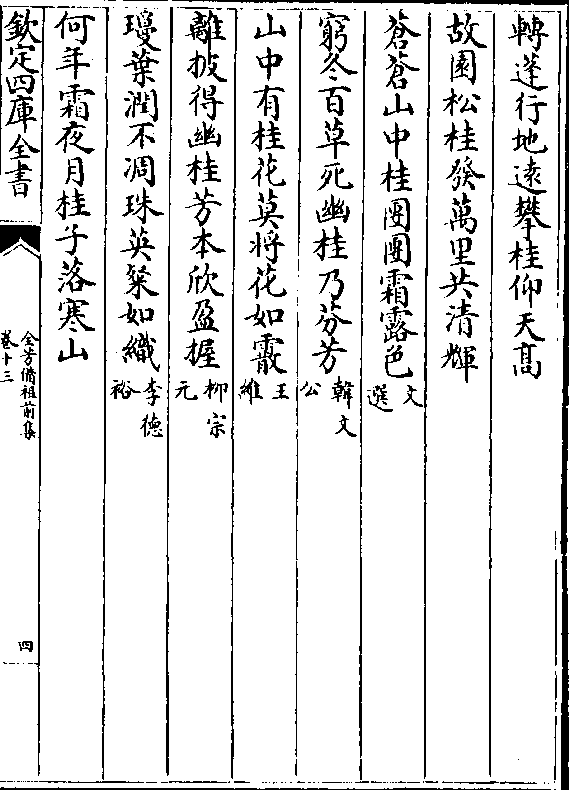 轉蓬行地遠攀桂仰天髙
故園松桂發萬里共清輝
蒼蒼山中桂團團霜露色文選
窮冬百草死幽桂乃芬芳韓文公
山中有桂花莫將花如霰王維
離披得幽桂芳本欣盈握柳宗元
瓊葉潤不凋珠英粲如織李德裕
何年霜夜月桂子落寒山
欽定四庫全書
全芳備祖前集
卷十三
四